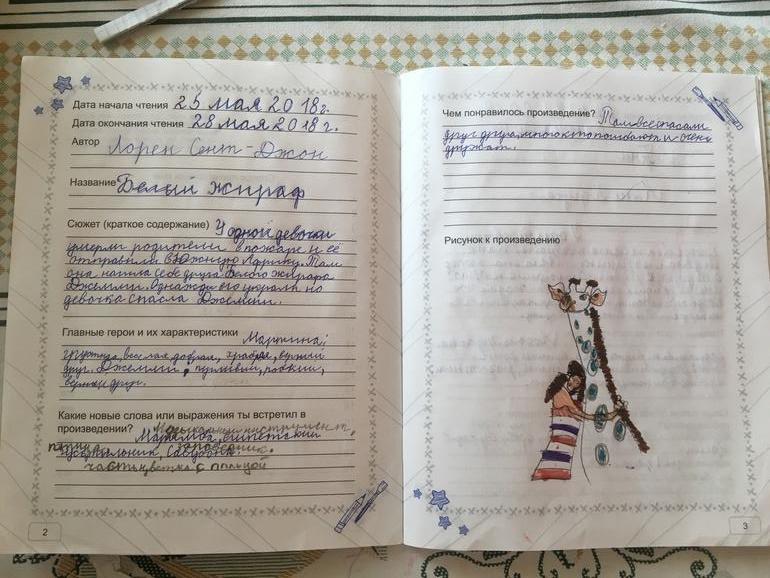 Дата начала чтения 25 мая 2018г.
Дата окончания чтения 28 мая 2018 г.
Автор Лорен Сент-Джон
Название Белый жираф
Сюжет (краткое содержание) У одной девочки
умерли родители в пожаре и её
отправили в Южную Африку. Там
она нашла себе друга Белого жирафа
Джемми. Однажды его украли но
девочка спасла Джемми.
Главные герои и их характеристики Мартина;
грустная, весёлая, добрая, храбрая, верный
друг. Джемми; пугливый, робкий,
верный друг.
Какие новые слова или выражения ты встретил в
произведении? Музыкальный инструмент.
Маримба, египетский
птица заповедник.
Савубона
часть цветка с пыльцой
2
Чем понравилось произведение? Там все спасали
друг друга, много кто и очень
дружат.
Рисунок к произведению
3